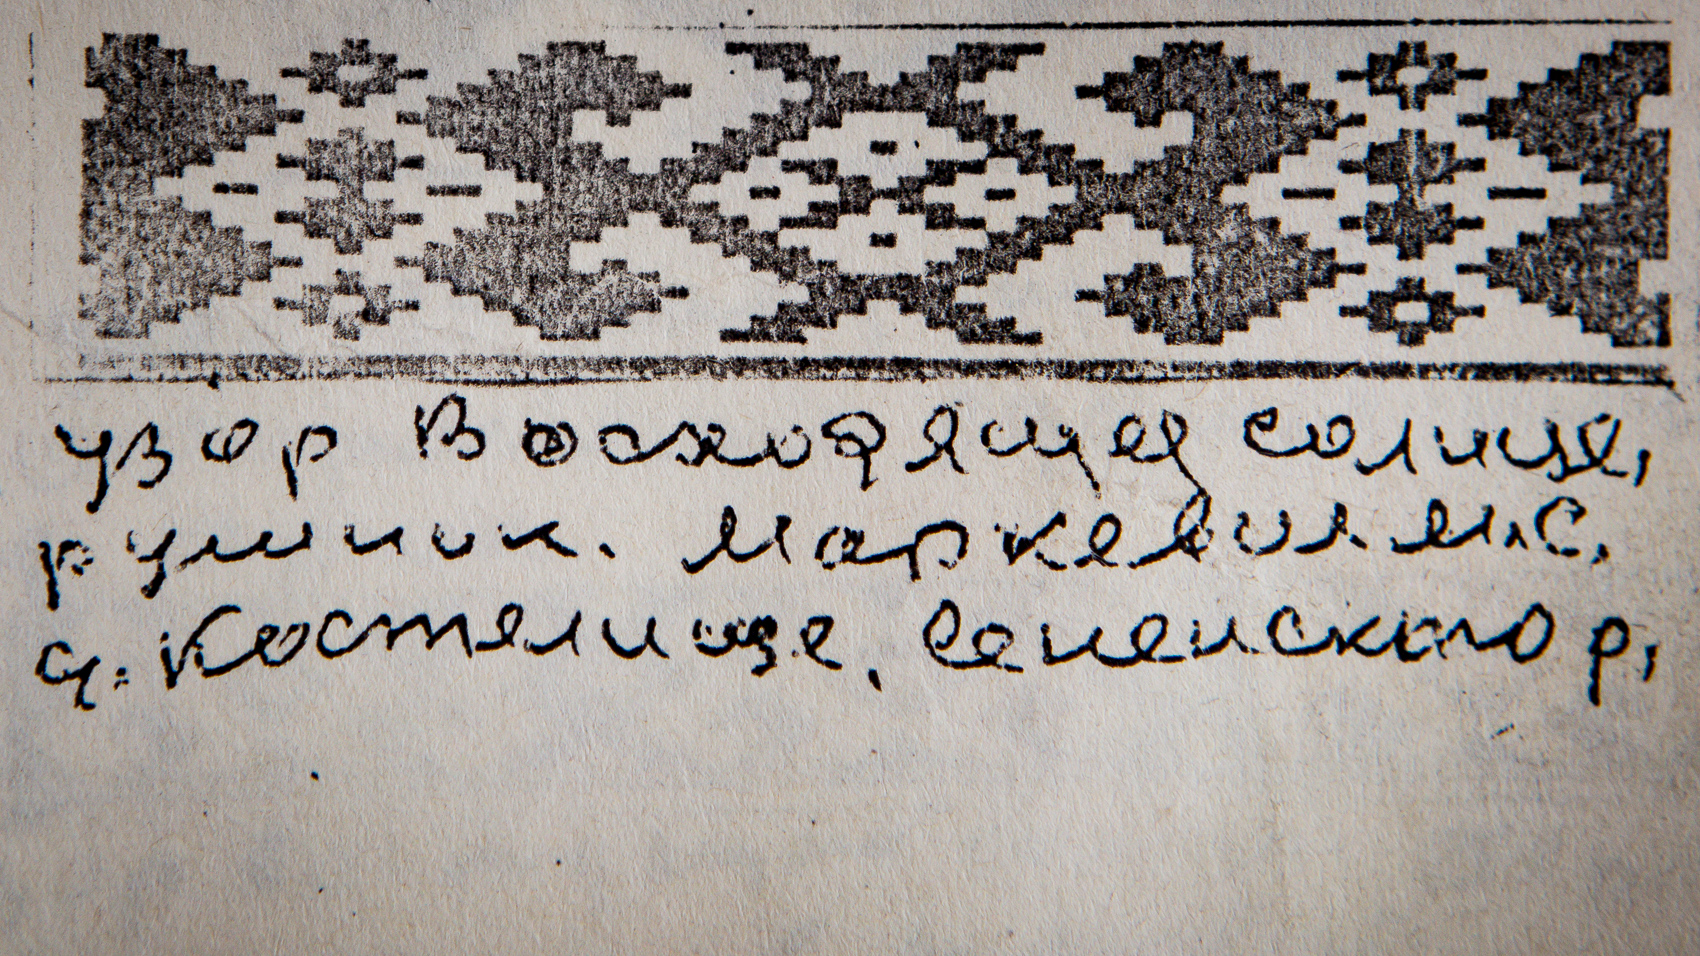 узор Восходящее солнце,
рушник. Маркевич М.С.
д. Костелище, Сененского р.